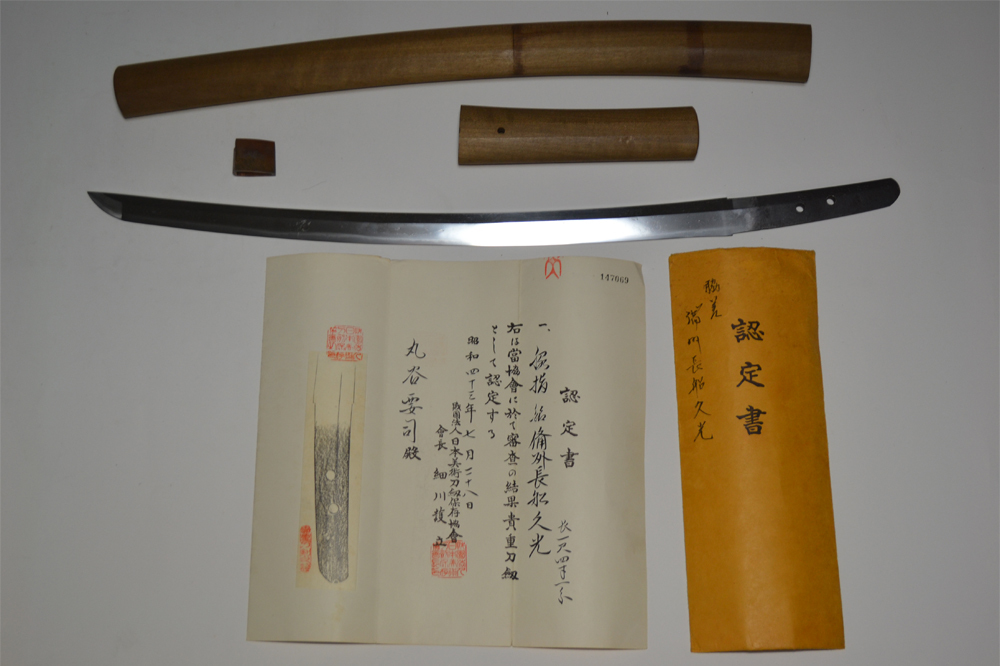 147069
認定書
一、脇指 銘 備州長船久光
長一尺四寸一分
右は當協會に於て審査の結果貴重刀剣
として認定する
昭和四十三年七月二十八日
財団法人日本美術刀剣保存協會
會長 細川護立
丸谷要司殿
認定書
脇差
備州長船久光